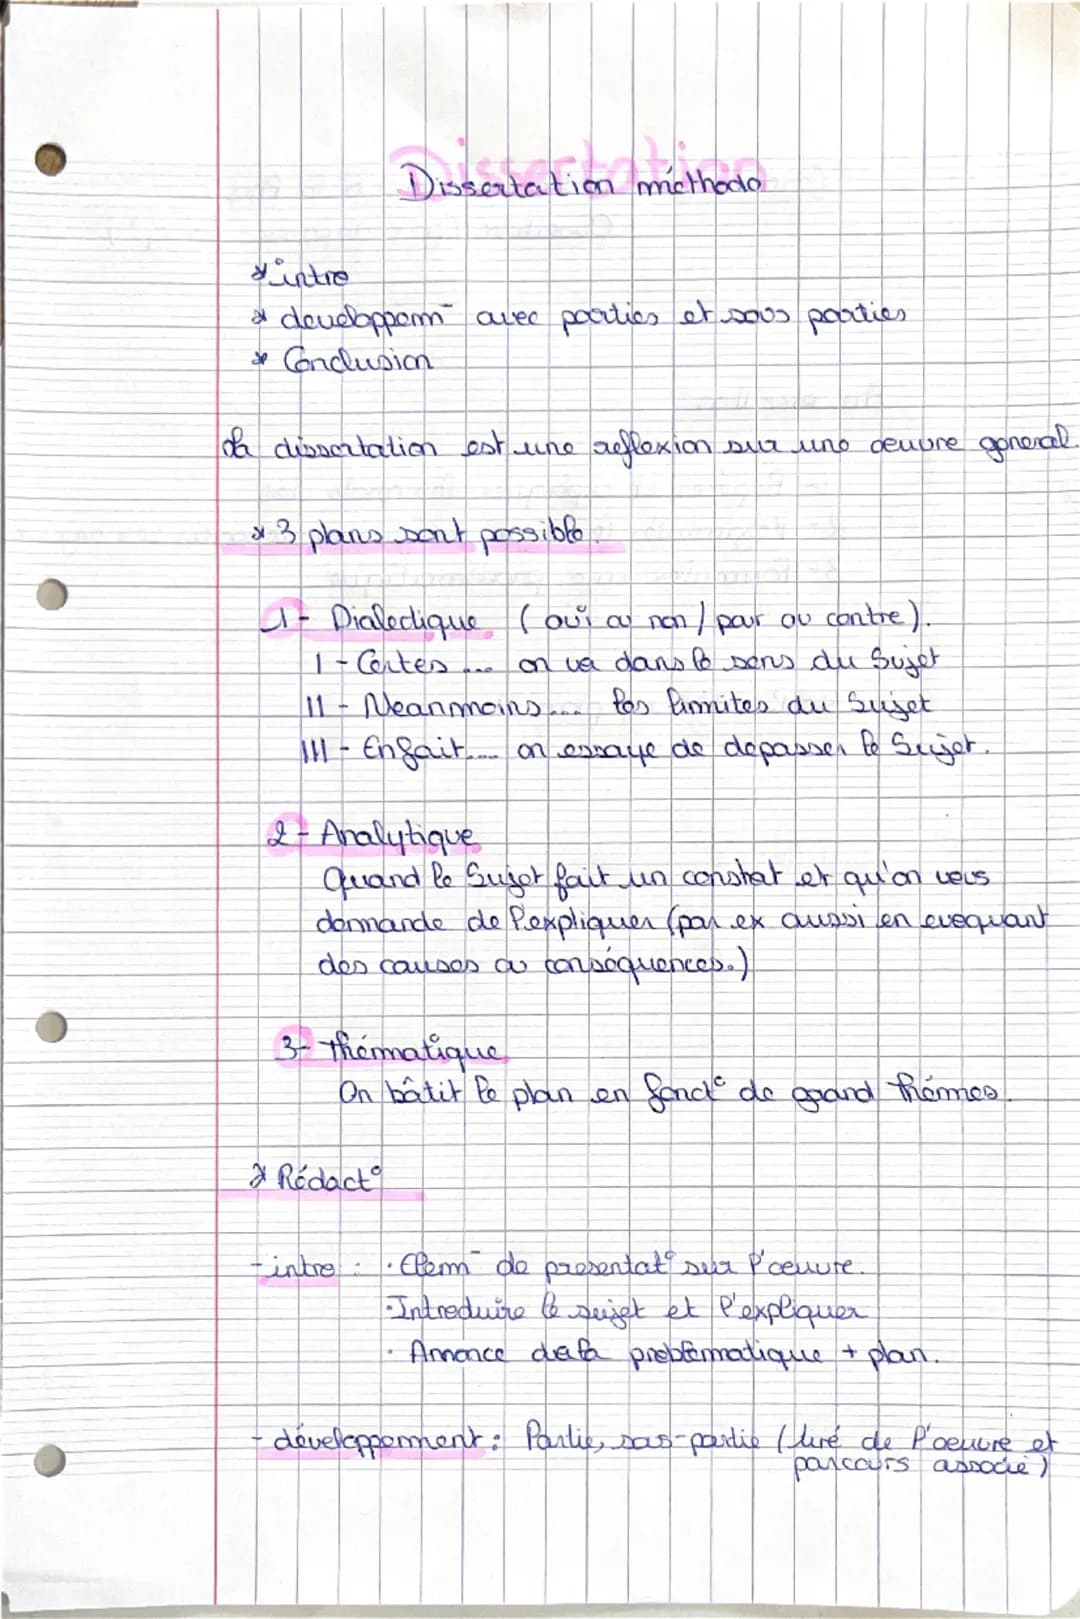 Dissertation méthodo
* intro
* developpem̄ avec parties et sous parties
* Conclusion
La dissertation est une reflexion sur une oeuvre general.
* 3 plans sont possible.
1- Dialectique (oui ou non / pour ou contre).
I - Certes ... on va dans le sens du Sujet
II - Neanmoins.... les limites du Sujet
III - En fait.... on essaye de depasser le Sujet.
2- Analytique
Quand le Sujet fait un constat et qu'on vous
demande de l'expliquer (par ex aussi en evoquant
des causes ou conséquences.)
3- thématique
On bâtit le plan en fonct° de grand thémes.
* Rédact°
- intro : · Elem̄ de presentat° sur l'oeuvre.
· Introduire le sujet et l'expliquer
· Annonce de la problématique + plan.
- développement : Partie, sous-partie (tiré de l'oeuvre et
parcours associé)